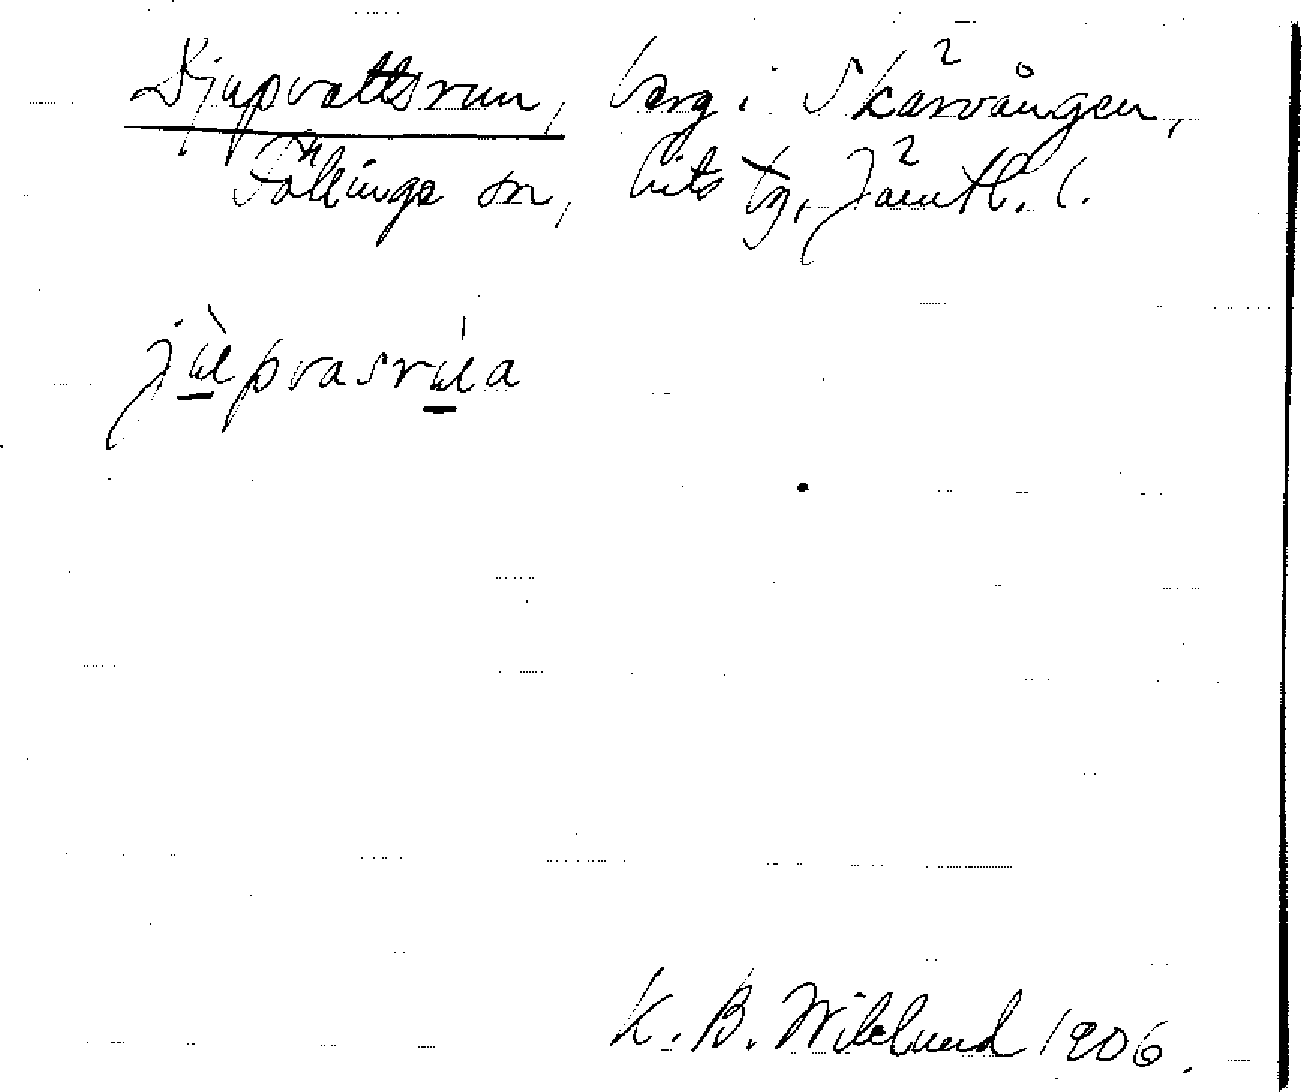 Djupvattsrun, berg i Skärvången,
Föllinge sn, Lits tg, Jämtl. l.
jùpvasrúa
K. B. Wiklund 1906.